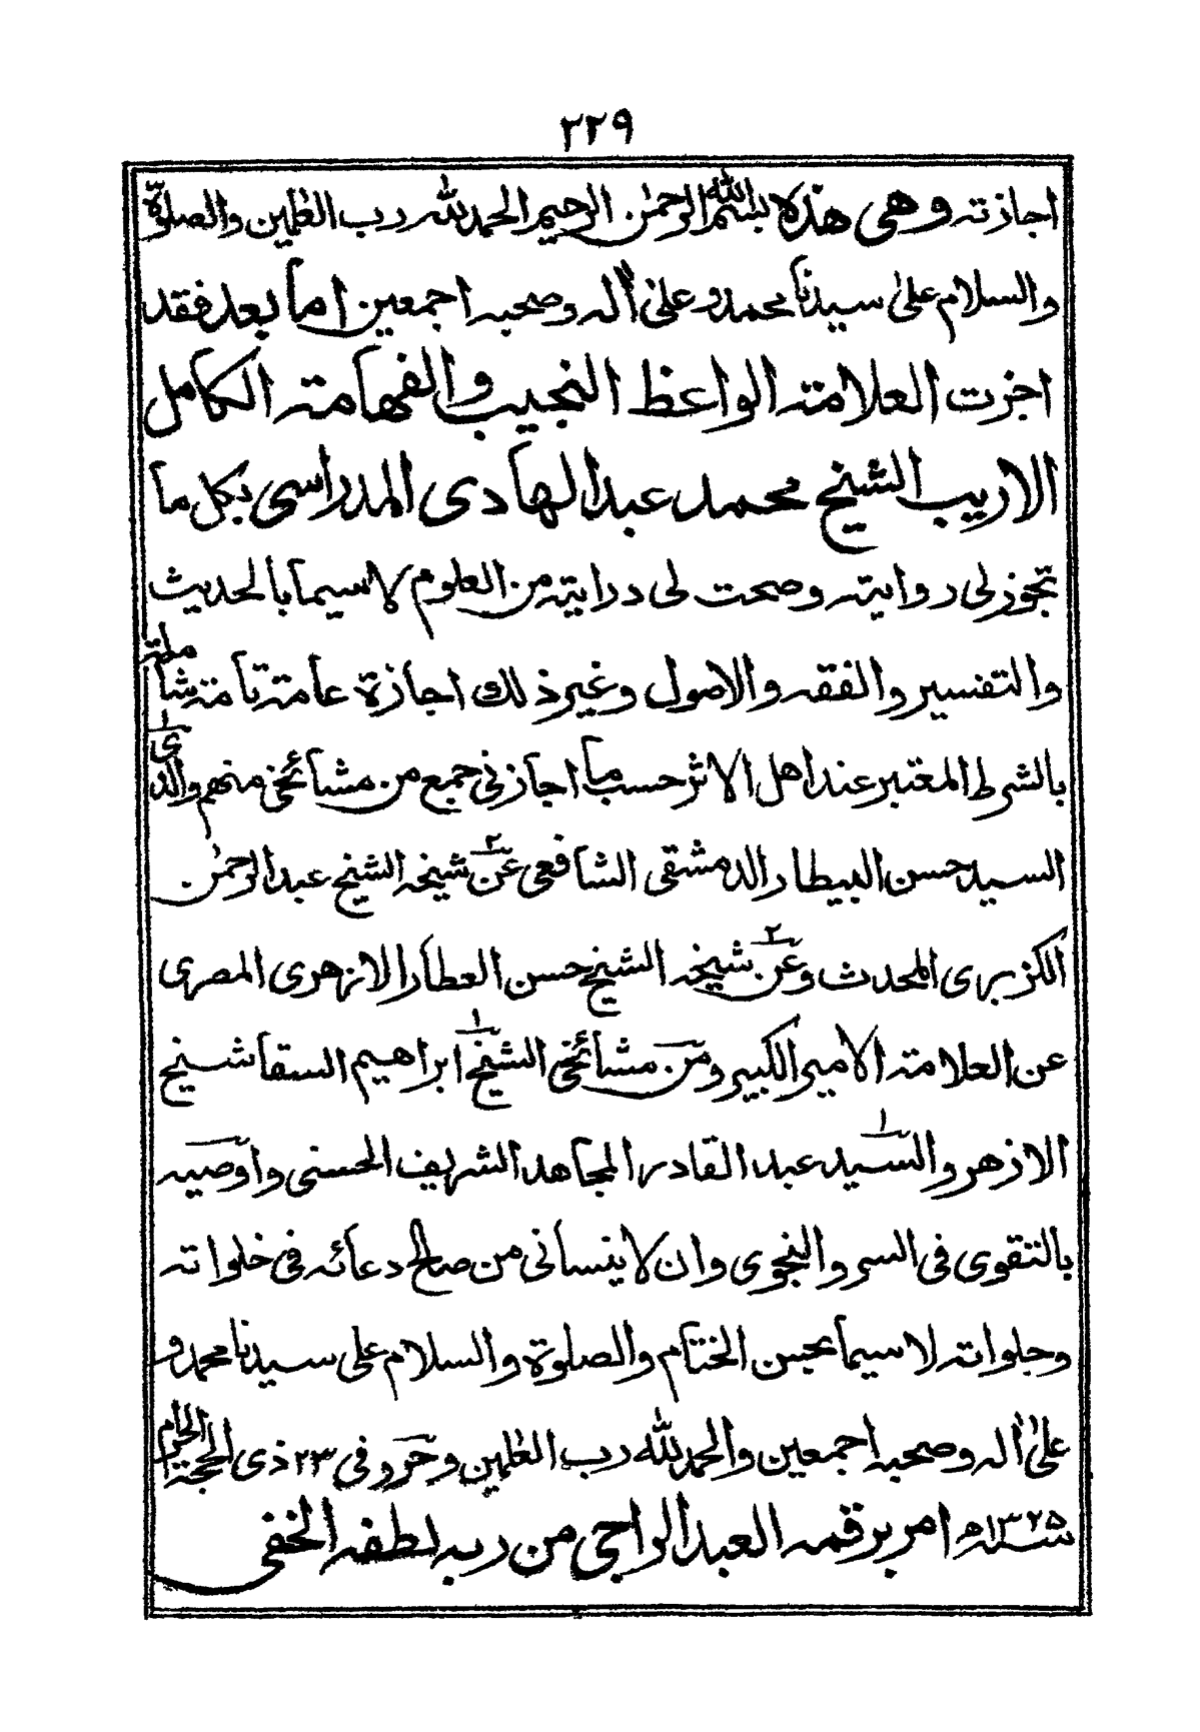 ٢٢٩
اجازته وهى هذه بسم الله الرحمٰن الرحيم الحمد لله رب العٰلمين والصلوٰة
والسلام علىٰ سيدنا محمد و علىٰ اٰله وصحبه اجمعين اما بعد فقد
اجزت العلامته الواعظ النجيب والفهامته الكامل
الاريب الشيخ محمد عبد الهادى المدراسى بكل ما
تجوز لى روايته وصحت لى درايته من العلوم لا سيما بالحديث
والتفسير والفقه والاصول وغير ذلك اجازة عامته تامته شاملته
بالشرط المعتبر عند اهل الاثر حسب ما اجازنى جمع من مشائخى منهم والدى ١
السيد حسن البيطار الدمشقى الشافعى عن ٢ شيخه الشيخ عبد الرحمٰن
الكزبرى المحدث وعن ٢ شيخه الشيخ حسن العطار الازهرى المصرى
عن العلامته الامير الكبير ومن مشائخى الشيخ ١ ابراهيم السقا شيخ
الازهر والسيد ١ عبد القادر المجاهد الشريف الحسنى واوصيه
بالتقوى فى السر والنجوى وان لا ينسانى من صالح دعائه فى خلواته
وجلواته لا سيما بحسن الختام والصلوة والسلام على سيدنا محمد و
علىٰ اٰله وصحبه اجمعين والحمد لله رب العٰلمين وحرر فى ٢٣ ذى الحجة الحرام
سنه ١٣٢٥ه امر برقمه العبد الراجى من ربه لطفه الخفى